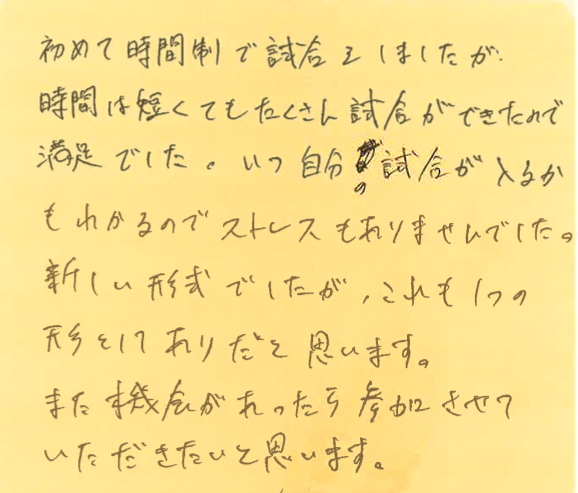 初めて時間制で試合をしましたが
時間は短くてもたくさん試合ができたので
満足でした。いつ自分の試合が入るか
もわかるのでストレスもありませんでした。
新しい形式でしたが、これも1つの
形としてありだと思います。
また機会があったら参加させて
いただきたいと思います。